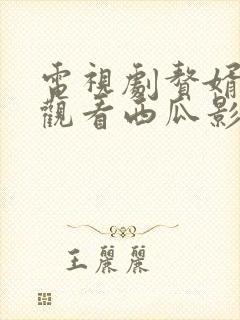 電視劇贅婿
觀看西瓜影
王麗麗